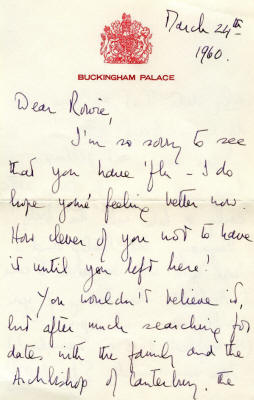 March 24th
1960.
BUCKINGHAM PALACE
Dear Rowie,
I'm so sorry to see
that you have 'flu - I do
hope you're feeling better now.
How clever of you not to have
it until you left here!
You wouldn't believe it,
but after much searching for
dates with the family and the
Archbishop of Canterbury, the